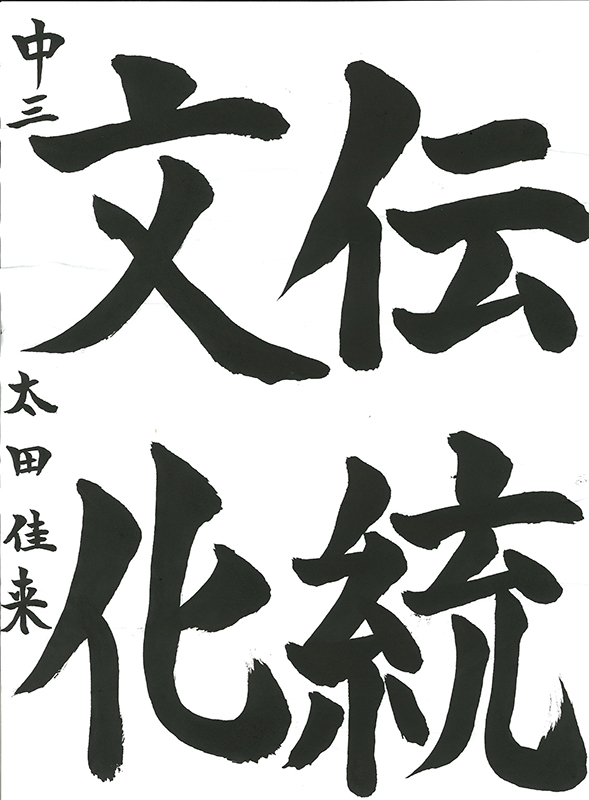 伝統
文化
中三 太田佳来